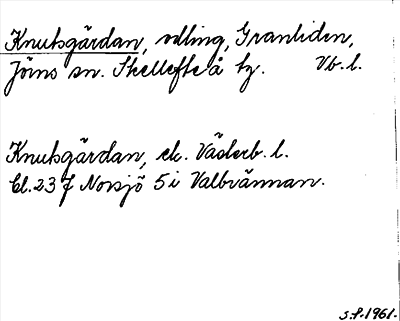 Knutsgärdan, odling, Granliden,
Jörns sn. Skellefteå tg. Vb. l.
Knutsgärdan, ek. Västerb. l.
bl. 23 J Norsjö 5 i Valbrännan.
S.P. 1961.